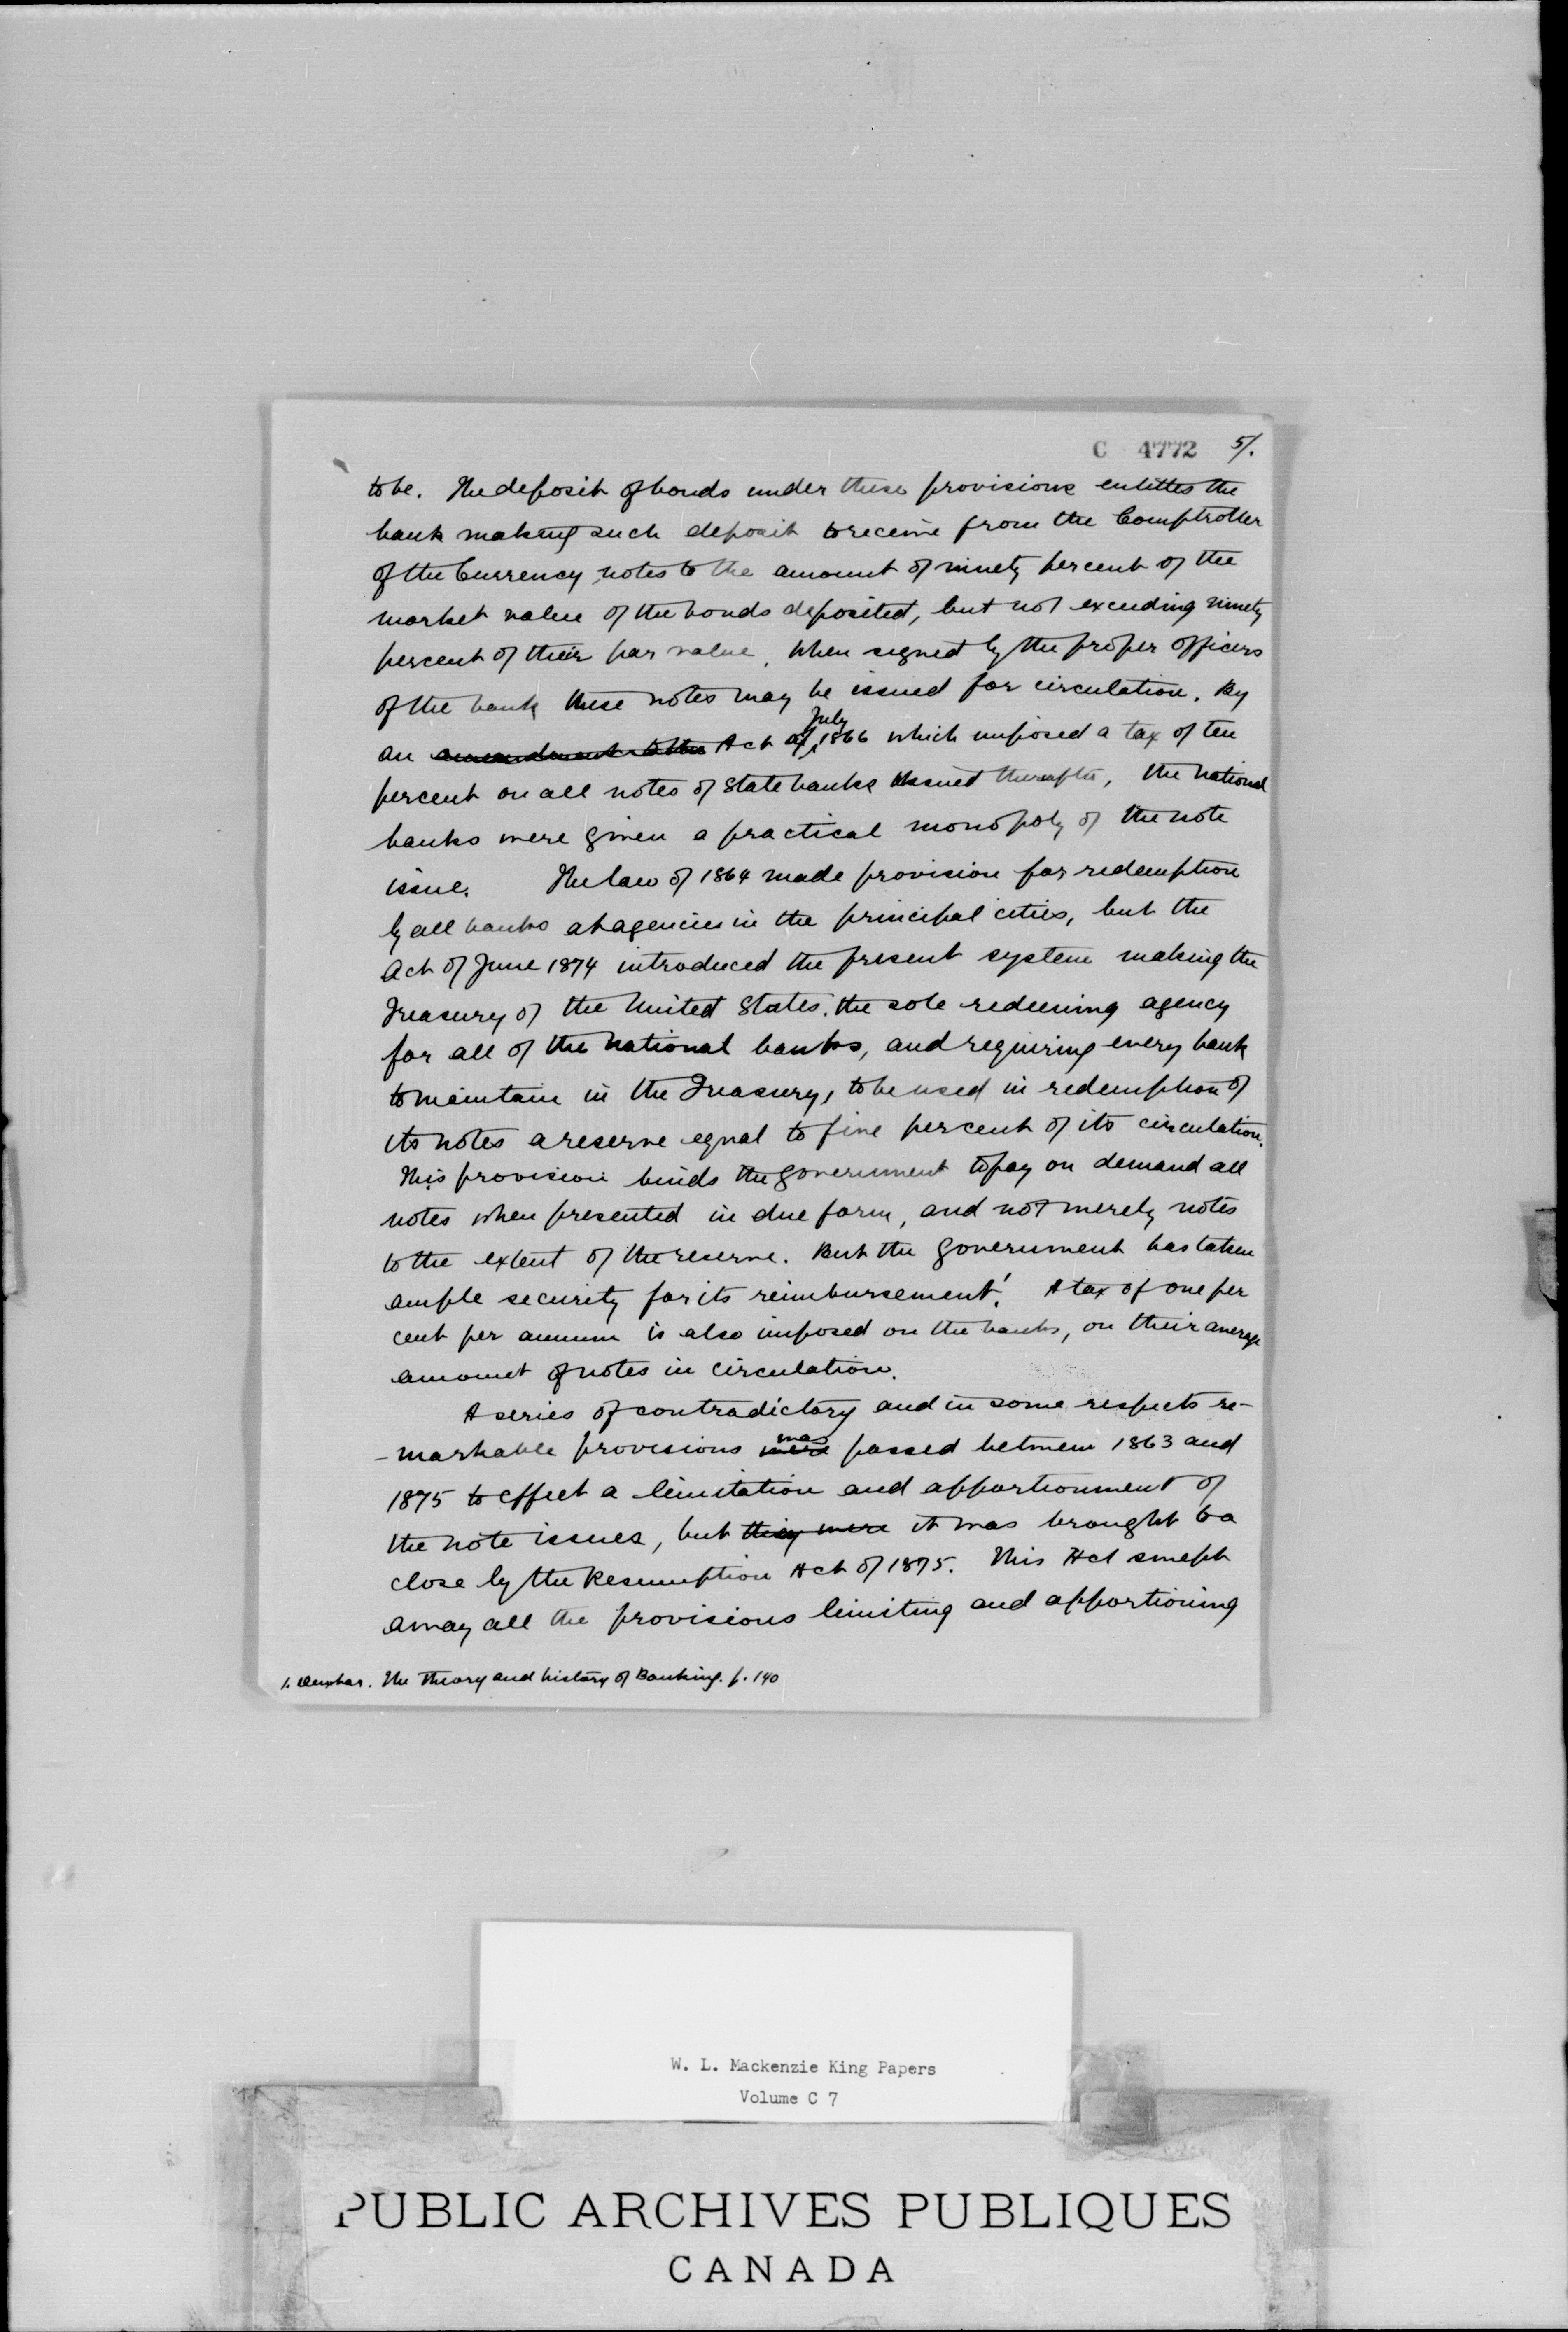 C 4772 5/.
to be. The deposit of bonds under these provisions entitles the
bank making such deposit to receive from the Comptroller
of the Currency, notes to the amount of ninety percent of the
market value of the bonds deposited, but not exceeding ninety
percent of their par value. When signed by the proper officers
of the bank these notes may be issued for circulation. By
July
an amendment to the Act of, 1866 which imposed a tax of ten
percent on all notes of State banks issued thereafter, the national
banks were given a practical monopoly of the note
issue. The law of 1864 made provision for redemption
by all banks at agencies in the principal cities, but the
Act of June 1874 introduced the present system making the
Treasury of the United States. the sole redeeming agency
for all of the national banks, and requiring every bank
to maintain in the Treasury, to be used in redemption of
its notes a reserve equal to five percent of its circulation.
This provision binds the government to pay on demand all
notes when presented in due form, and not merely notes
to the extent of the reserve. But the government has taken
ample security for its reimbursement.¹ A tax of one per
cent per annum is also imposed on the banks, on their average
amount of notes in circulation.
A series of contradictory and in some respects re-
was
-markable provisions were passed between 1863 and
1875 to effect a limitation and apportionment of
the note issues, but they were it was brought to a
close by the Resumption Act of 1875. This Act swept
away all the provisions limiting and apportioning
1. Dunbar. The Theory and history of Banking. p. 140
W. L. Mackenzie King Papers
Volume C 7
PUBLIC ARCHIVES PUBLIQUES
CANADA